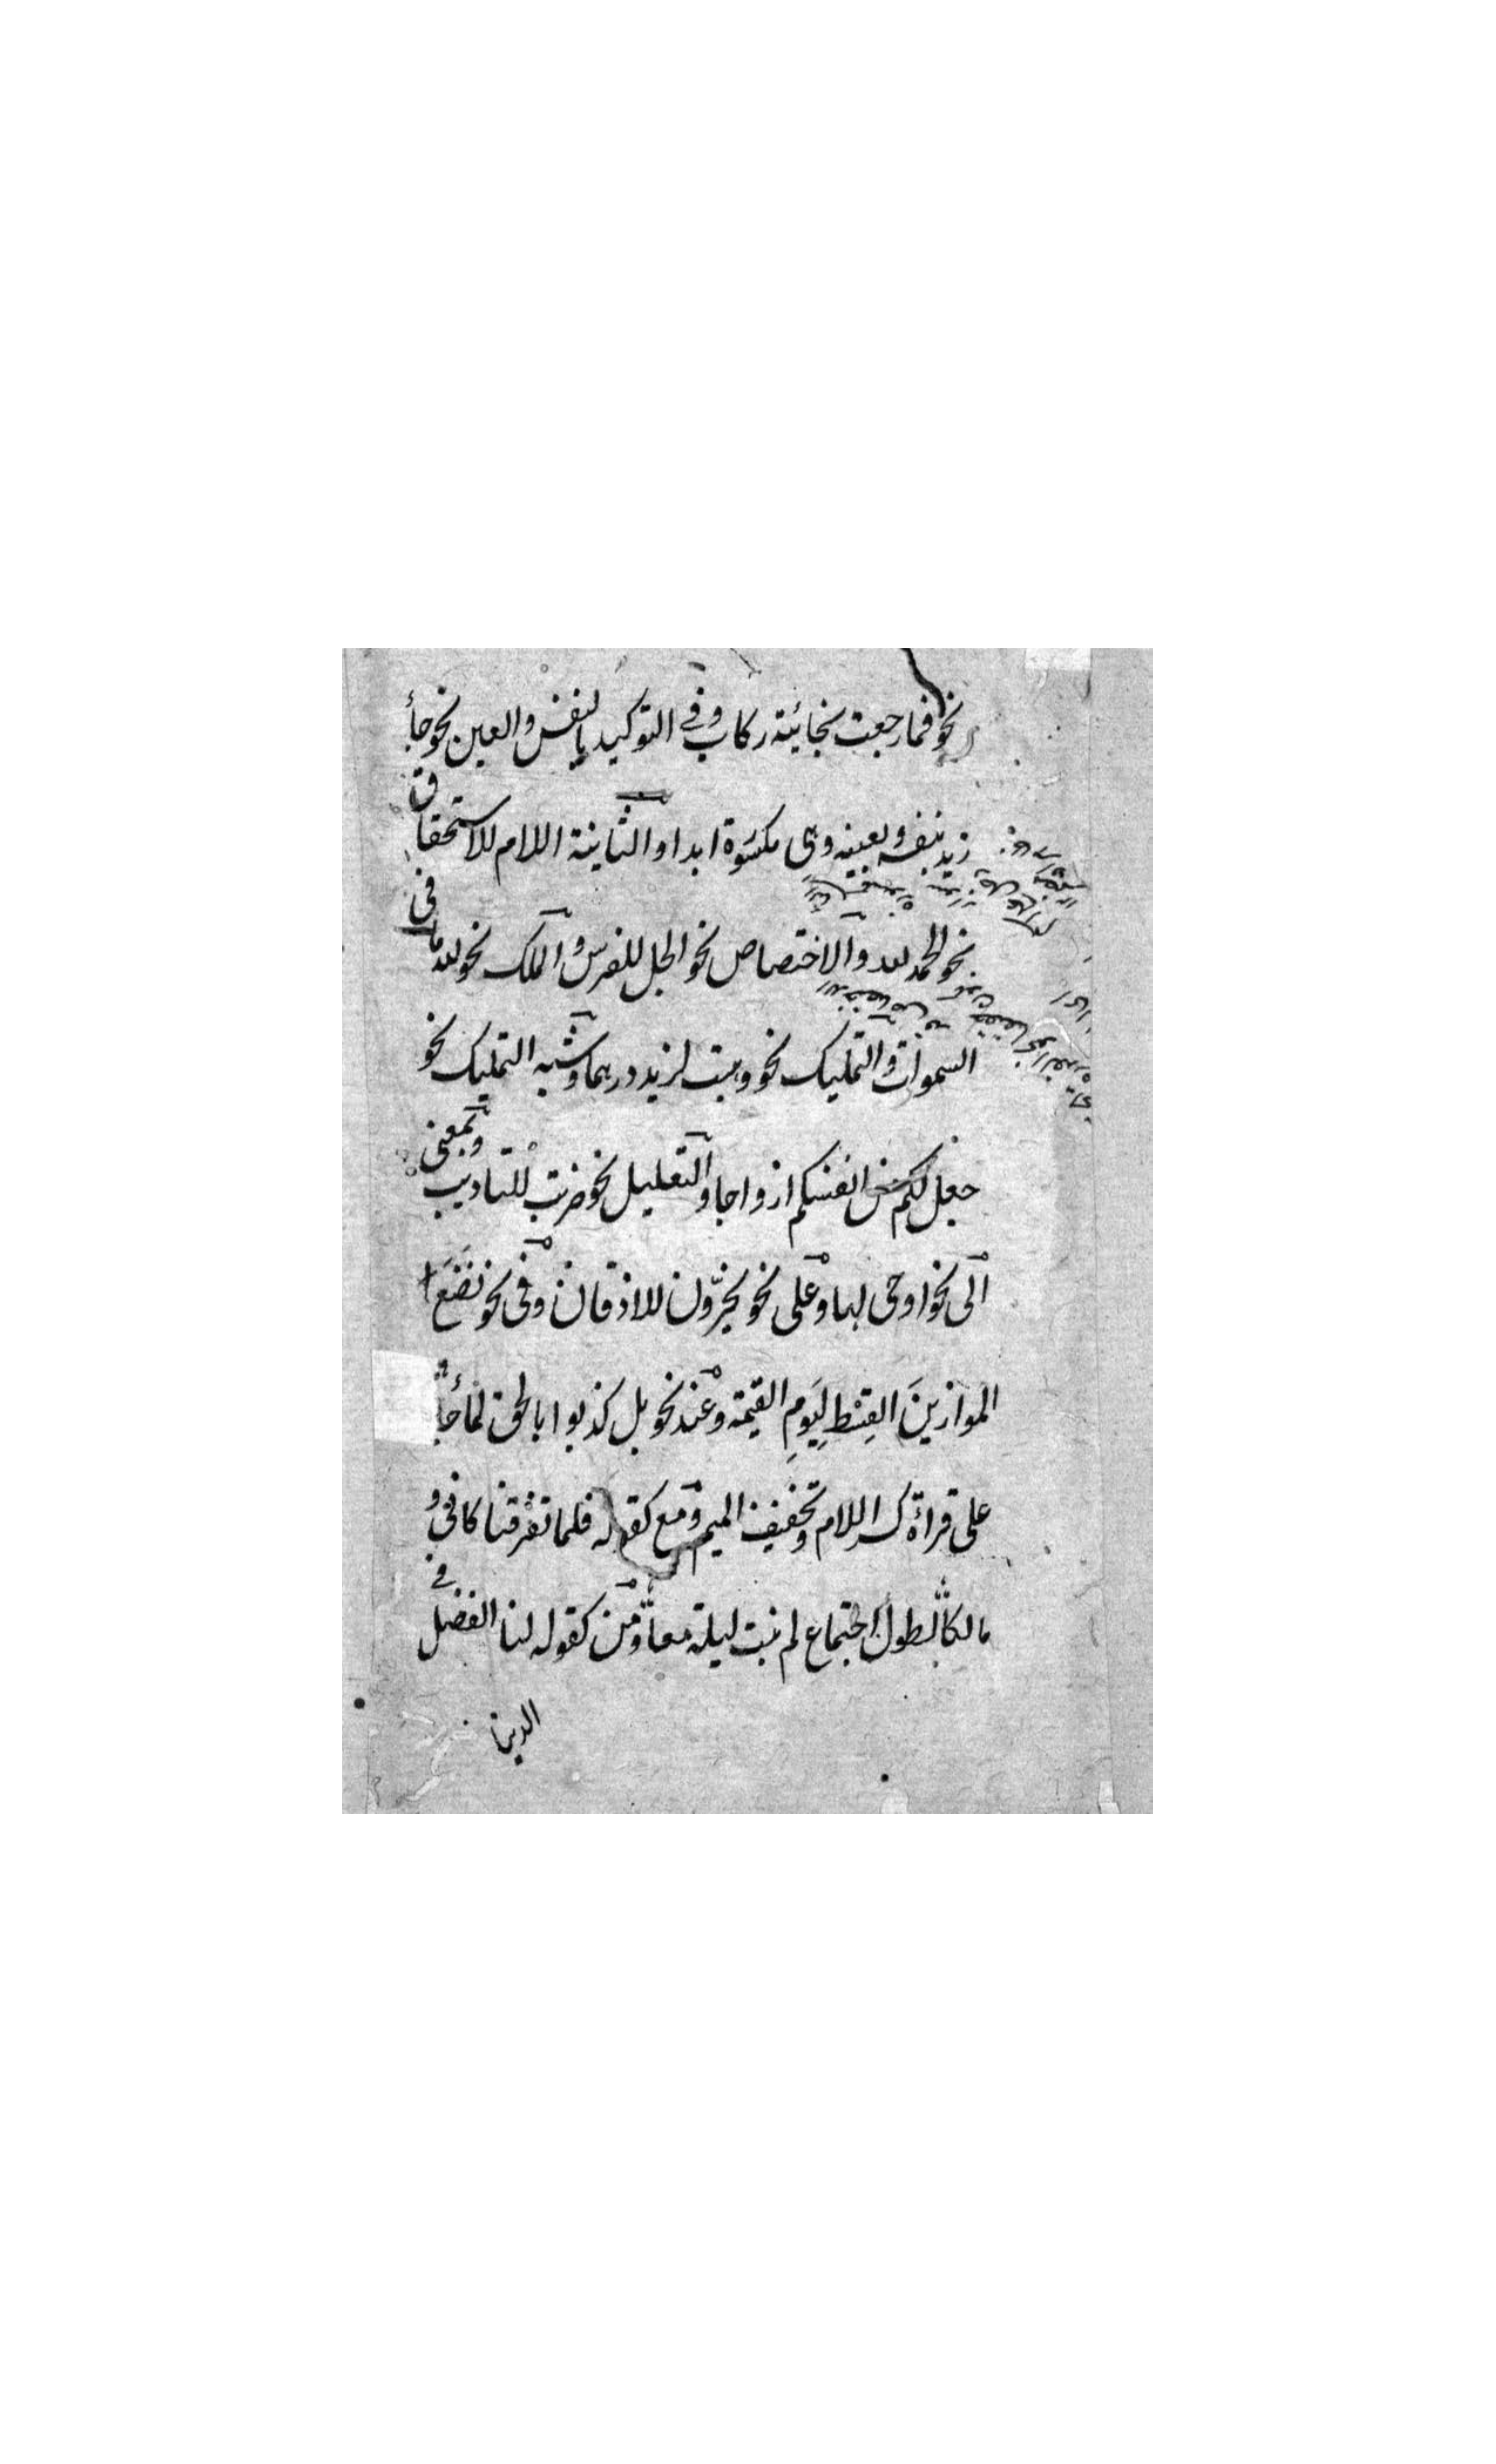 نحو فما رجعت بخائبة ركاب وفي التوكيد بالنفس والعين نحو جأ
زيد بنفسه وبعينه وهى مكسورة ابدا والثانية اللام للاستحقاق
نحو الحمد لله والاختصاص نحو الجل للفرس والملك نحو لله ما فى
السموات والتمليك نحو وهبت لزيد درهما وشبه التمليك نحو
جعل لكم من انفسكم ازواجا والتعليل نحو ضربت للتاديب وبمعنى
الى نحو اوحى لها وعلى نحو يخرّون للاذقان وفى نحو نَضَعَ
الموازينَ القِسْطَ لِيَومِ القيمة وعند نحو بل كذبوا بالحق لما جأ
على قراءة كسر اللام وتخفيف الميم ومع كقوله فلما تفرقنا كانى و
مالكا لطول اجتماع لم نبت ليلة معا ومن كقوله لنا الفضل فے
الدينا